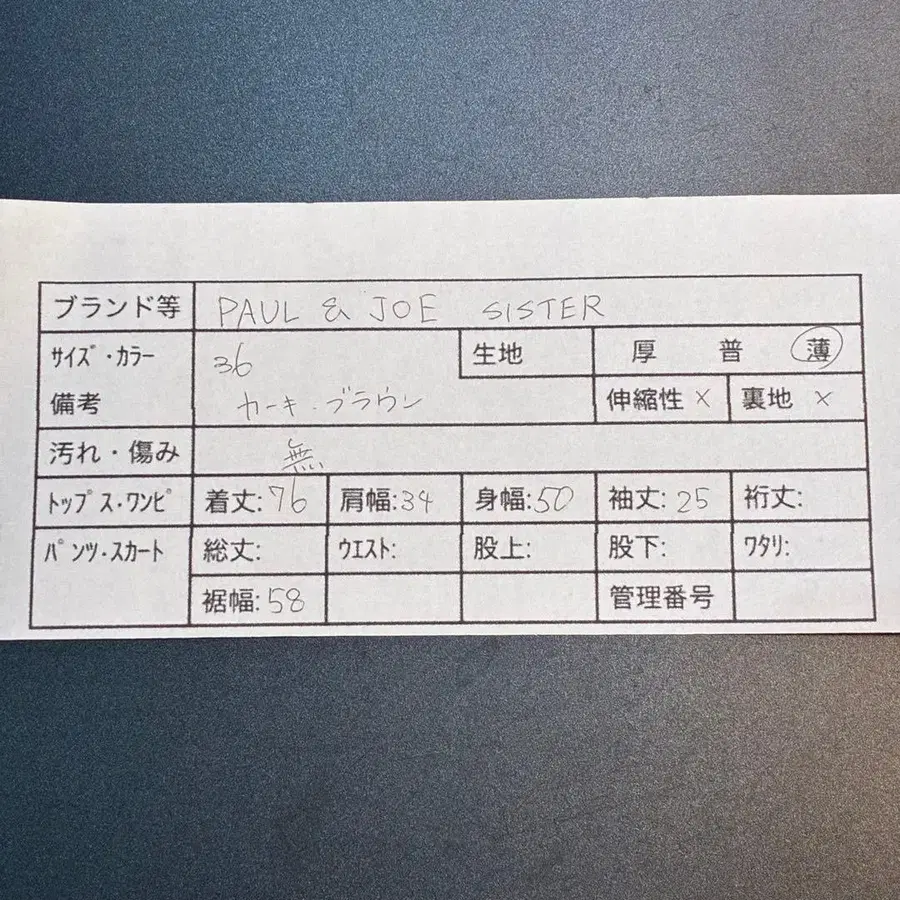 ブランド等 PAUL & JOE SISTER
サイズ・カラー 36 生地 厚 普 薄
備考 カーキ・ブラウン 伸縮性 × 裏地 ×
汚れ・傷み 無
トップス・ワンピ 着丈:76 肩幅:34 身幅:50 袖丈:25 裄丈:
パンツ・スカート 総丈: ウエスト: 股上: 股下: ワタリ:
裾幅:58 管理番号